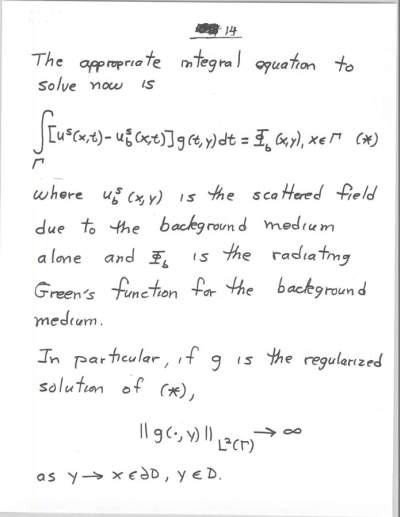 14
The appropriate integral equation to
solve now is
∫_Γ [u^s(x,t) - u_b^s(x,t)] g(t,y) dt = Φ_b(x,y), x ∈ Γ (*)
where u_b^s(x,y) is the scattered field
due to the background medium
alone and Φ_b is the radiating
Green's function for the background
medium.
In particular, if g is the regularized
solution of (*),
||g(·,y)||_{L²(Γ)} → ∞
as y → x ∈ ∂D, y ∈ D.